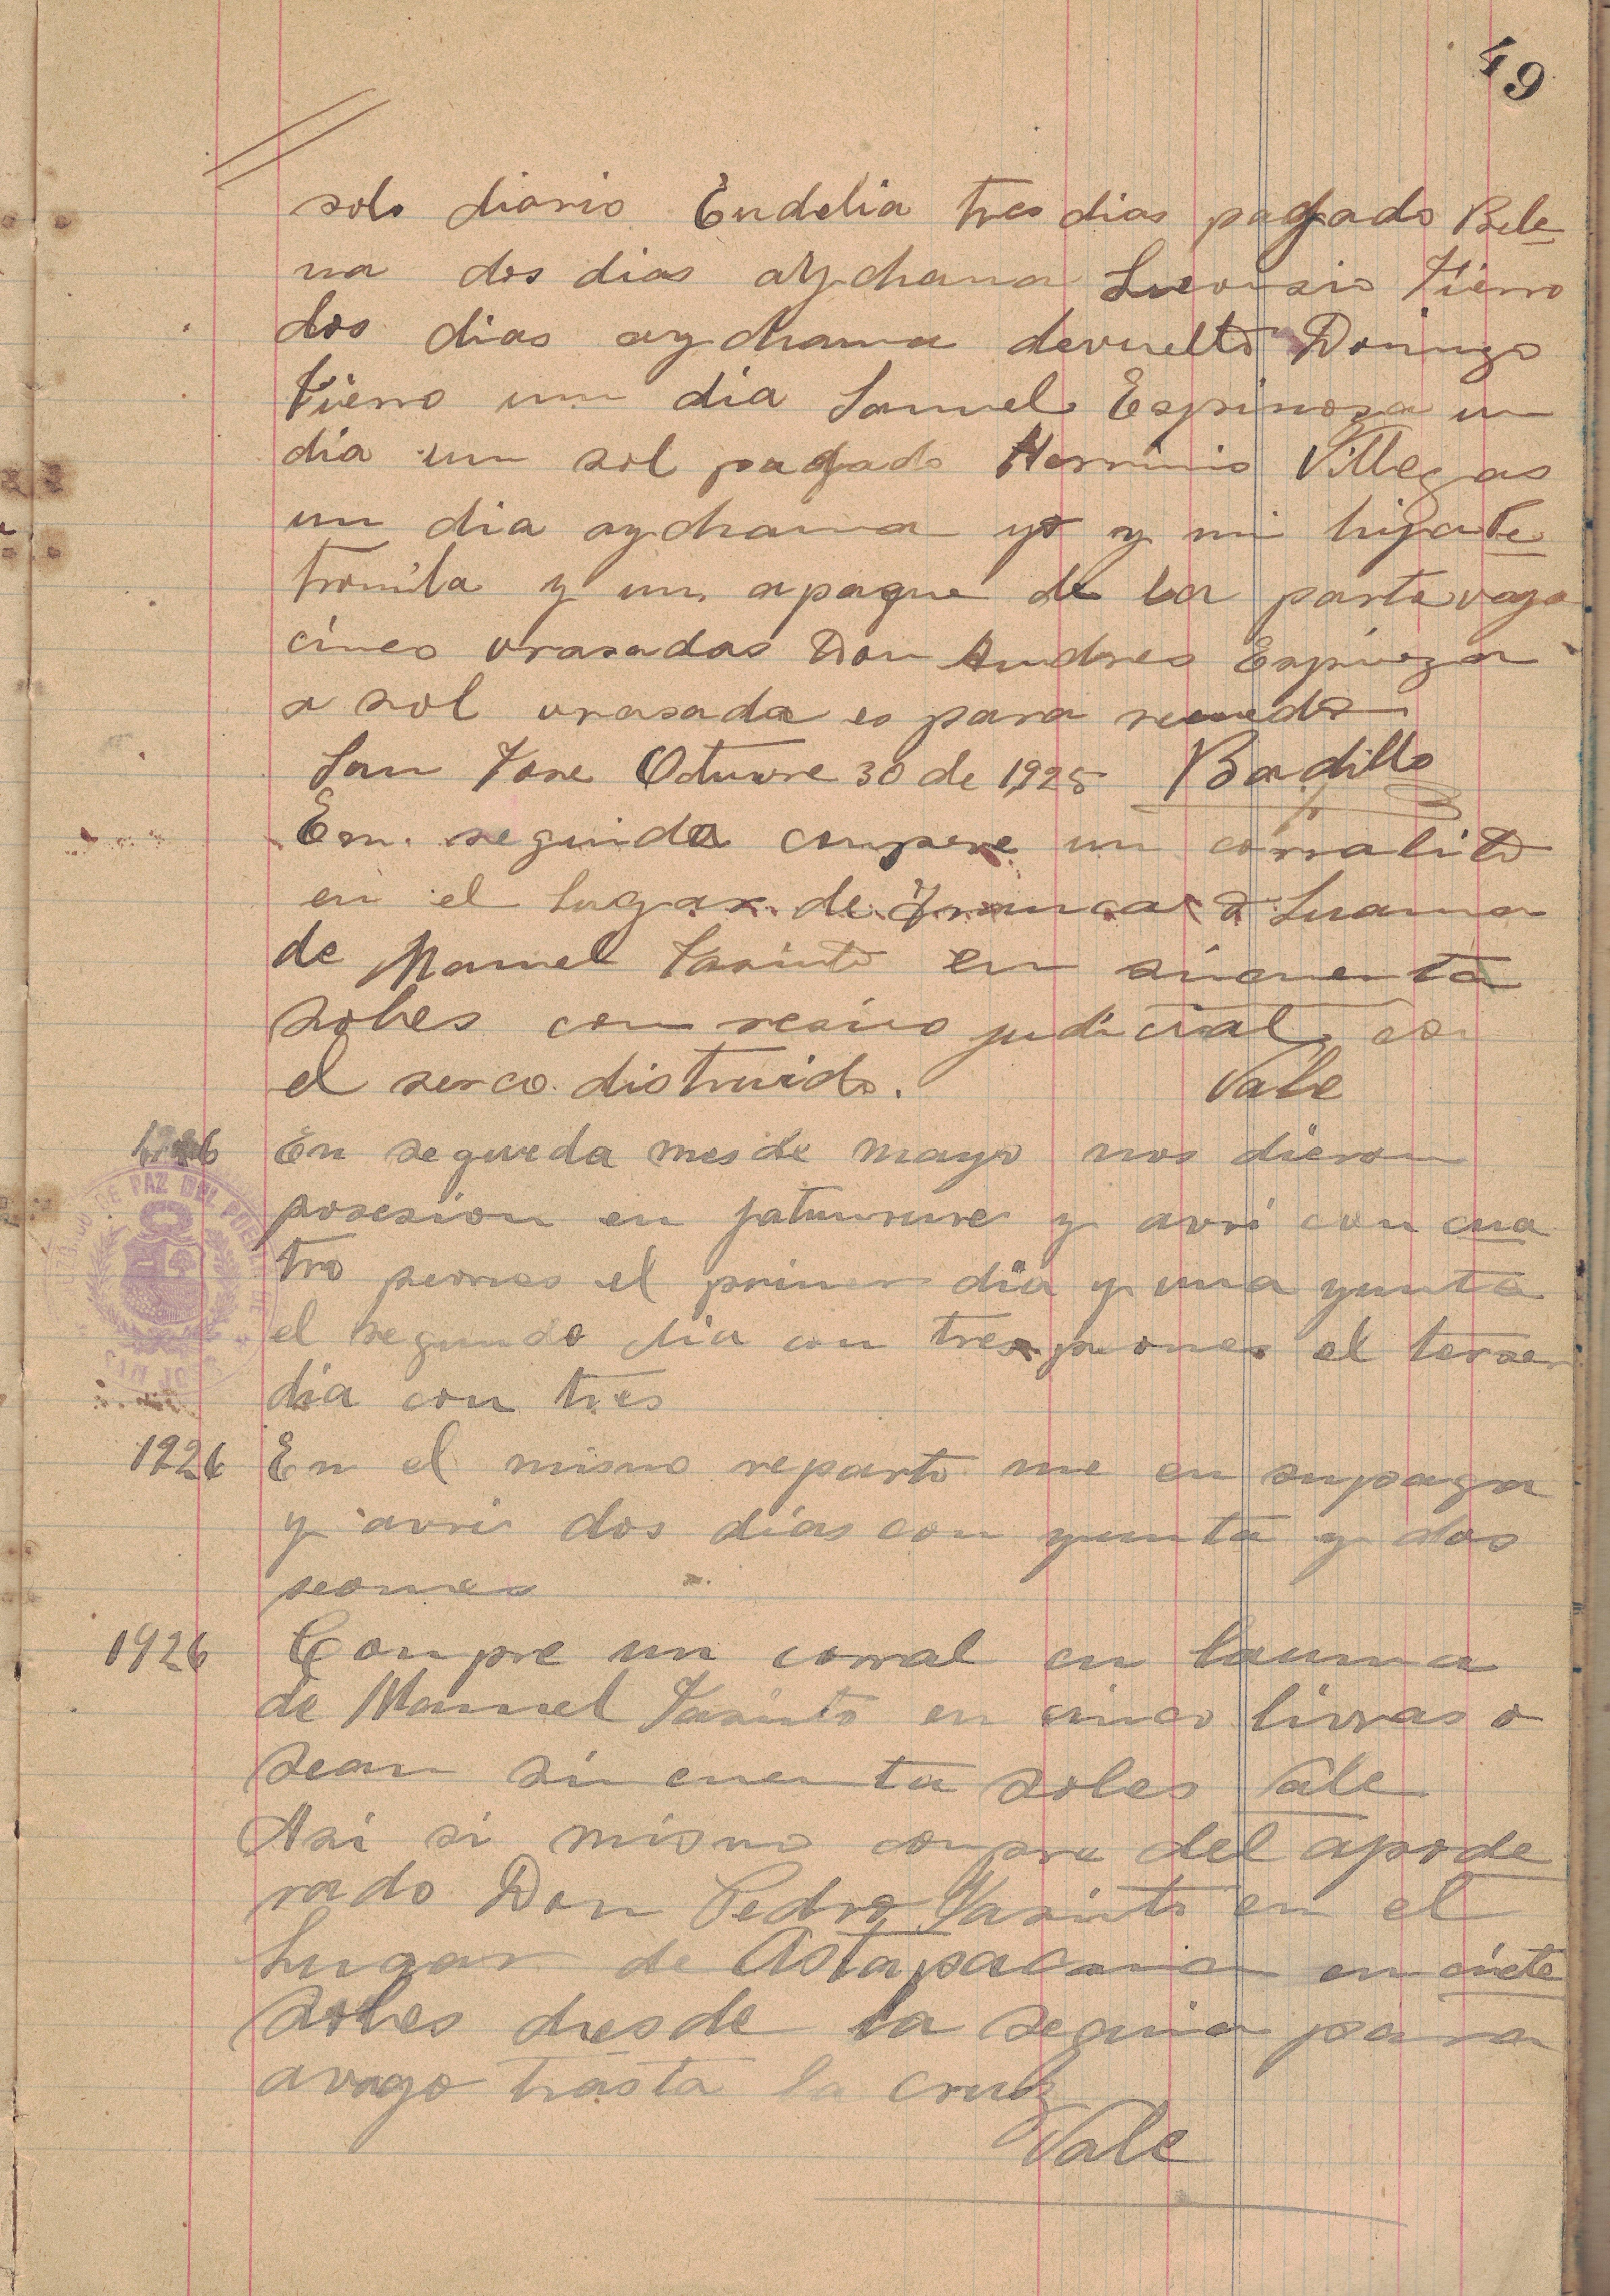 49
solo diario Eudelia tres dias pagado Bele
na dos dias aychama Lueonsio Fierro
dos dias aychama devuelto Domingo
Fierro un dia Samuel Espinoza un
dia un sol pagado Herminio Villegas
un dia aychama yo y mi hija Pe
tronila y un apaque de la parte vago
cinco vrasadas Don Andres Espinoza
a sol vrasada es para recuerdo
San Jose Otuvre 30 de 1925 Badillo
En seguida compre un corralito
en el lugar de
de Manuel Jasinto en sincuenta
soles con resivo judicial con
el serco distruido. Vale
1926 En segueda mes de mayo nos dieron
posesion en jatunrure y avri con cua
tro peones el primer dia y una yunta
el segundo dia con tres peones el terser
dia con tres
1926 En el mismo reparto me en supaga
y avri dos dias con yunta y dos
peones
1926 Compre un corral en launa
de Manuel Jasinto en cinco livras o
sean sincuenta soles Vale
Asi si mismo compre del apode
rado Don Pedro Jasinto en el
Lugar de Astapacana en ciete
soles desde la sequia para
avago hasta la cruz
Vale